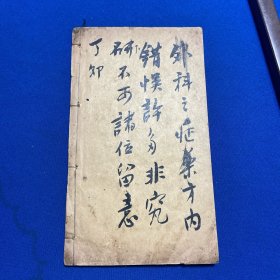 外科之症薬方内
錯悮許多非究
研不可諸位留意
丁卯